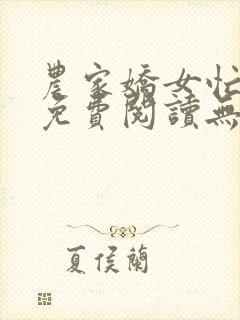 農家嬌女忙
免費閱讀無
夏侯蘭